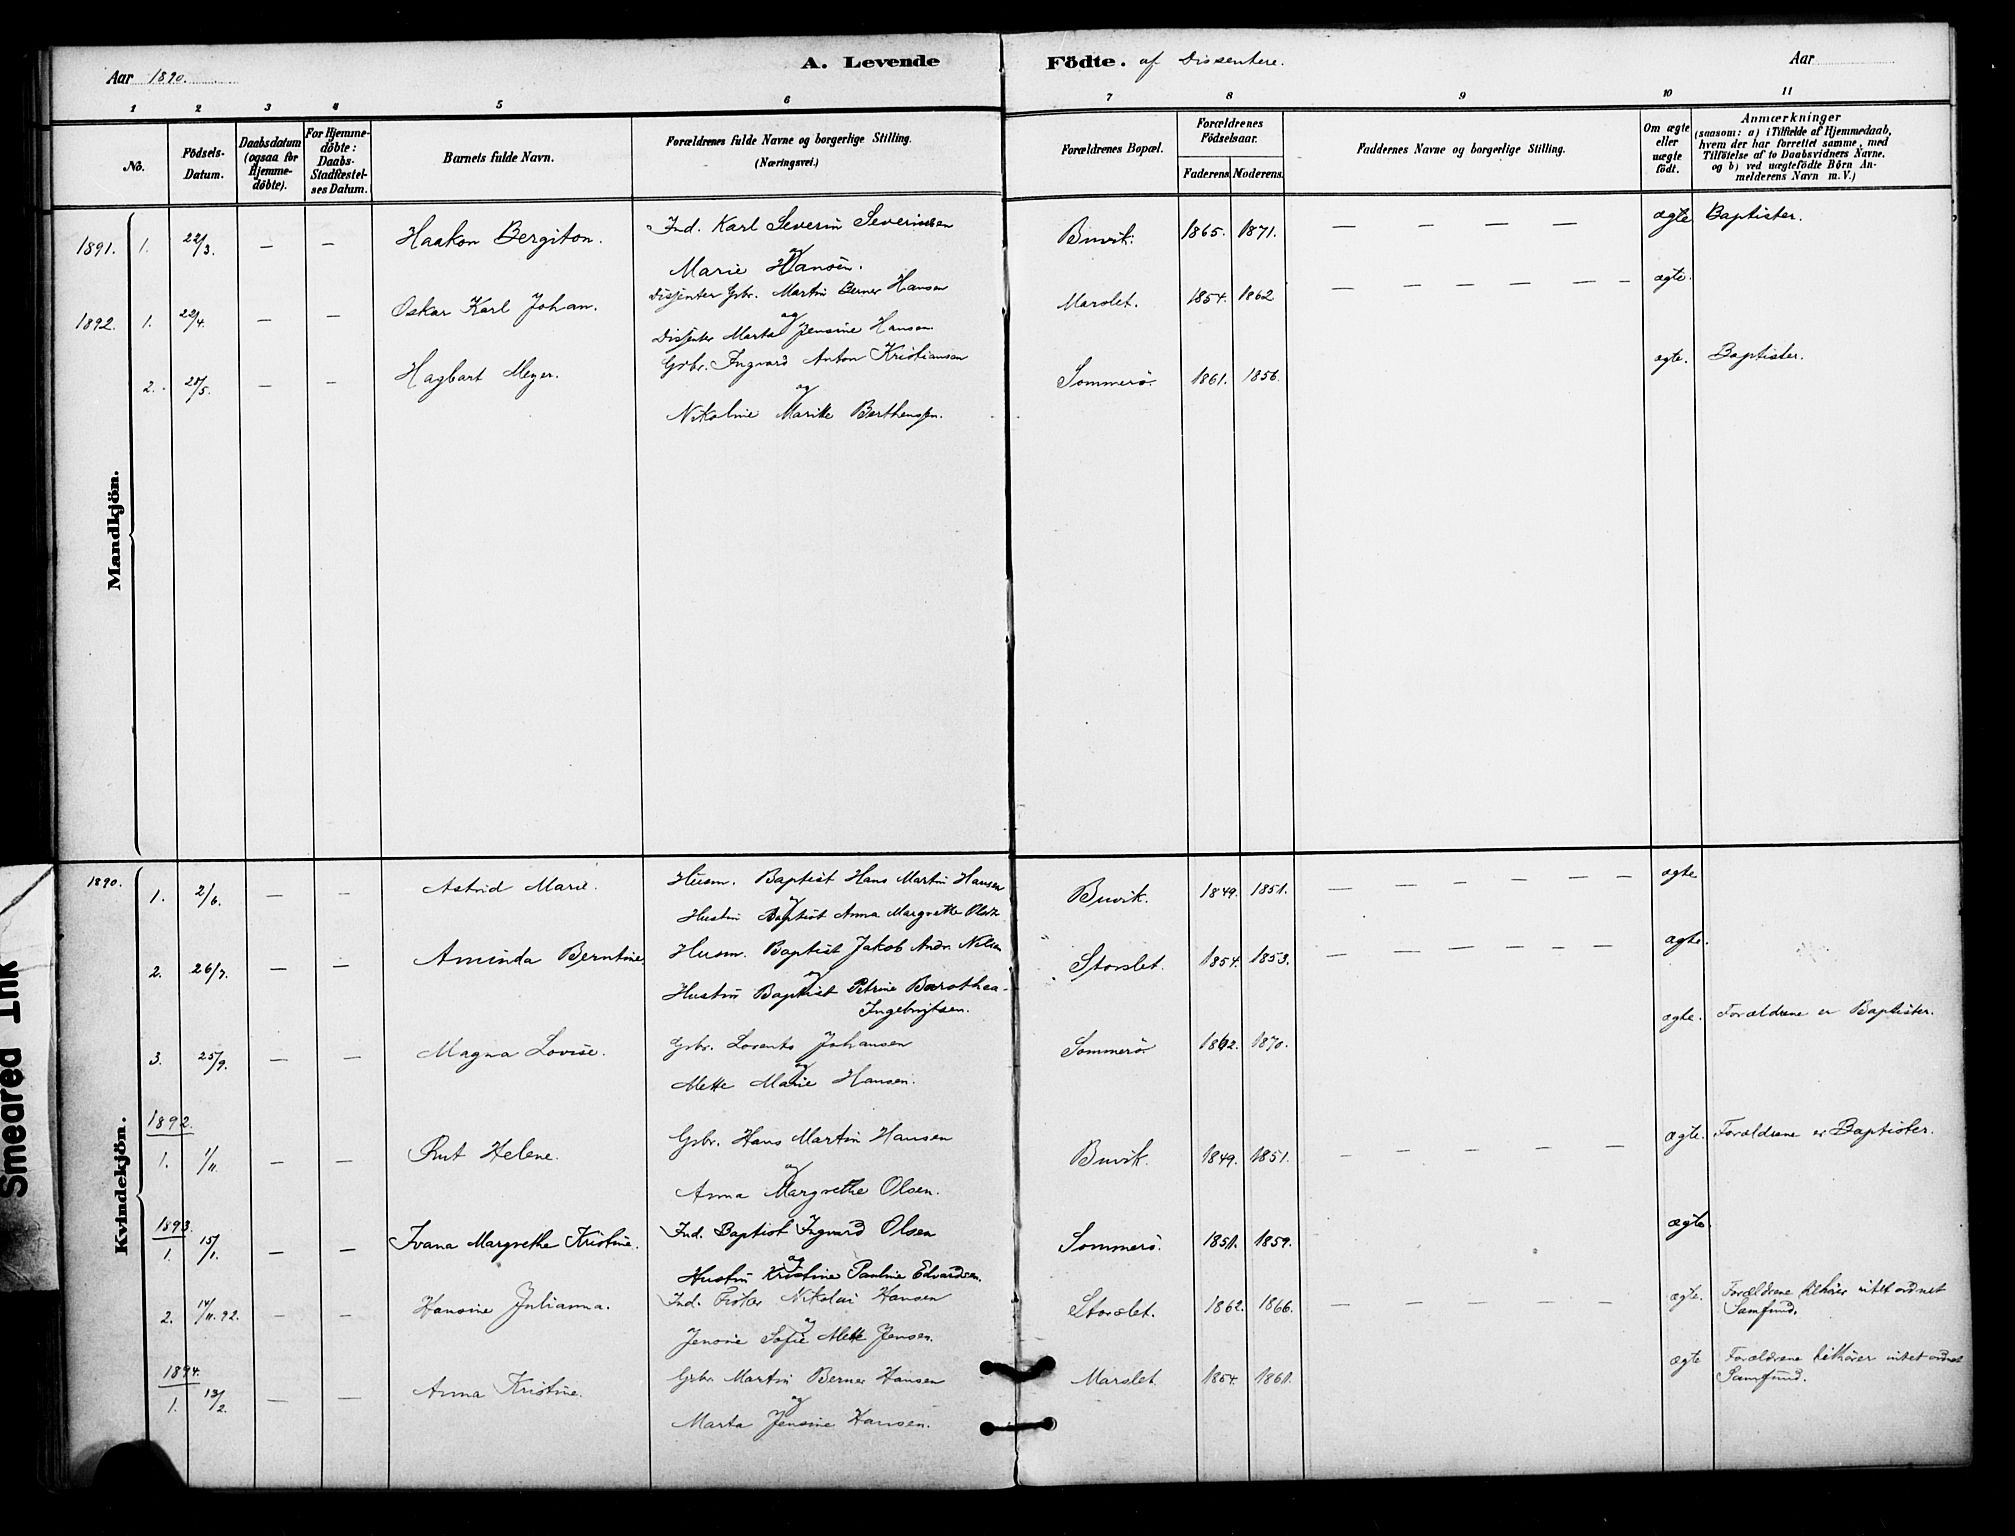 Aar 1890.
A. Levende Födte. af Dissentere.
Aar
1 2 3 4 5 6 7 8 9 10 11
No.
Födsels-Datum.
Daabsdatum (ogsaa for Hjemme-döbte).
For Hjemme-döbte: Daabs-Stadfæstel-ses Datum.
Barnets fulde Navn.
Forældrenes fulde Navne og borgerlige Stilling. (Næringsvei.)
Forældrenes Bopæl.
Forældrenes Födselsaar.
Faderens. Moderens.
Faddernes Navne og borgerlige Stilling.
Om ægte eller uægte födt.
Anmærkninger (saasom: a) i Tilfælde af Hjemmedaab, hvem der har forrettet samme, med Tilföielse af to Daabsvidners Navne, og b) ved uægtefödte Börn Anmelderens Navn m. V.)
Mandkjön.
1891. 1. 22/3. — — Haakon Bergiton. Ind. Karl Severin Severinsen Buvik. 1865. 1871. — — — — ægte Baptister.
og
Marie Hansen.
1892. 1. 22/4. — — Oskar Karl Johan. Dissenter Gbr. Martin Berner Hansen Marslet. 1854. 1862 — — — — — ægte.
og
Dissenter Marta Jensine Hansen.
2. 28/5. — — Hagbart Meyer. Gbr. Ingvard Anton Kristiansen Sommerö. 1861. 1856. ægte. Baptister.
og
Nikoline Maritte Berthensen.
Kvindekjön.
1890. 1. 2/6. — — Astrid Marie. Husm. Baptist Hans Martin Hansen Buvik. 1849. 1851. — — — — — — ægte
og
Hustru Baptist Anna Margrethe Olsen
2. 26/7. — — Aminda Berntine Husm. Baptist Jakob Andr. Nilsen Storslet. 1854. 1853. — — — — — ægte.
og
Hustru Baptist Petrine Dorothea
Ingebrigtsen.
3. 25/9. — — Magna Lovise. Gbr. Lorents Johansen Sommerö. 1862. 1870. ægte. Forældrene er Baptister.
og
Mette Marie Hansen.
1892.
1. 1/11. — — Rut Helene. Gbr. Hans Martin Hansen Buvik. 1849. 1851. — — — — — ægte. Forældrene er Baptister.
og
Anna Margrethe Olsen.
1893.
1. 15/1. — — Ivana Margrethe Kristine. Ind. Baptist Ingvard Olsen Sommerö. 1851. 1859. ægte.
og
Hustru Kristine Pauline Edvardsen.
2. 14/11. 92. — — Hansine Julianna. Ind. Fisker Nikolai Hansen Storslet. 1862. 1866. — — — — — ægte. Forældrene tilhører intet ordnet
Samfund.
og
Jensine Sofie Mette Jensen.
1894.
1. 13/2. — — Anna Kristine. Gbr Martin Berner Hansen Marslet. 1854. 1861. ægte Forældrene tilhører intet ordnet
Samfund.
og
Marta Jensine Hansen.
Smeared Ink